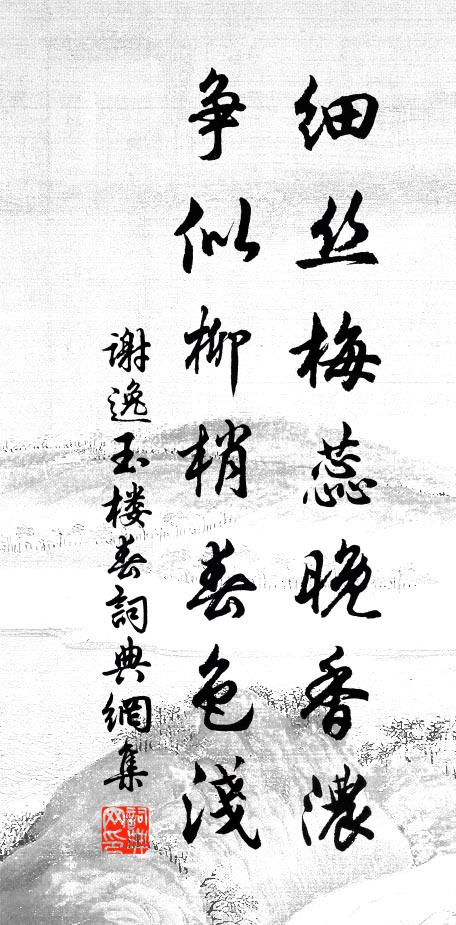 细丝梅蕊晚香浓
争似柳梢春色浅
谢逸玉楼春詞典網集